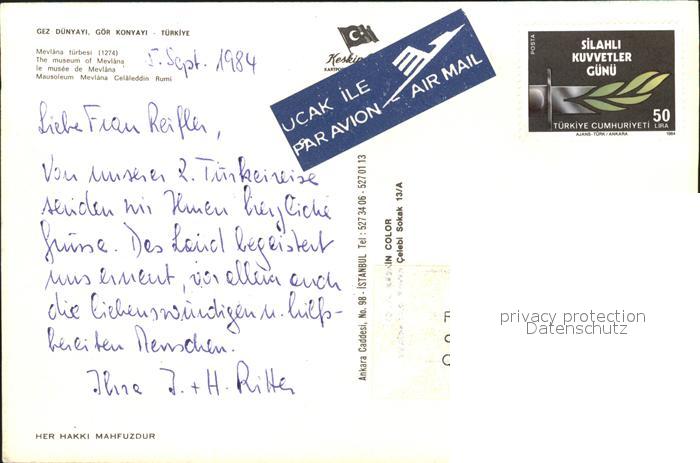 GEZ DÜNYAYI, GÖR KONYAYI - TÜRKİYE
Mevlâna türbesi (1274)
The museum of Mevlâna
le musée de Mevlâna
Mausoleum Mevlâna Celâleddin Rumi
5. Sept. 1984
Keskin
UCAK İLE
PAR AVION
AIR MAIL
POSTA
SİLAHLI
KUVVETLER
GÜNÜ
50
LİRA
TÜRKİYE CUMHURİYETİ
AJANS-TÜRK/ANKARA
1984
Liebe Frau Reifler,
Von unserer 2. Türkeireise
senden wir Ihnen herzliche
Grüsse. Das Land begeistert
uns erneut, vor allem auch
die liebenswürdigen u. hilfs-
bereiten Menschen.
Ihre J. + H. Ritter
Ankara Caddesi, No. 98 - İSTANBUL Tel: 527 34 06 - 527 01 13
KESKİN COLOR
Çelebi Sokak 13/A
privacy protection
Datenschutz
HER HAKKI MAHFUZDUR